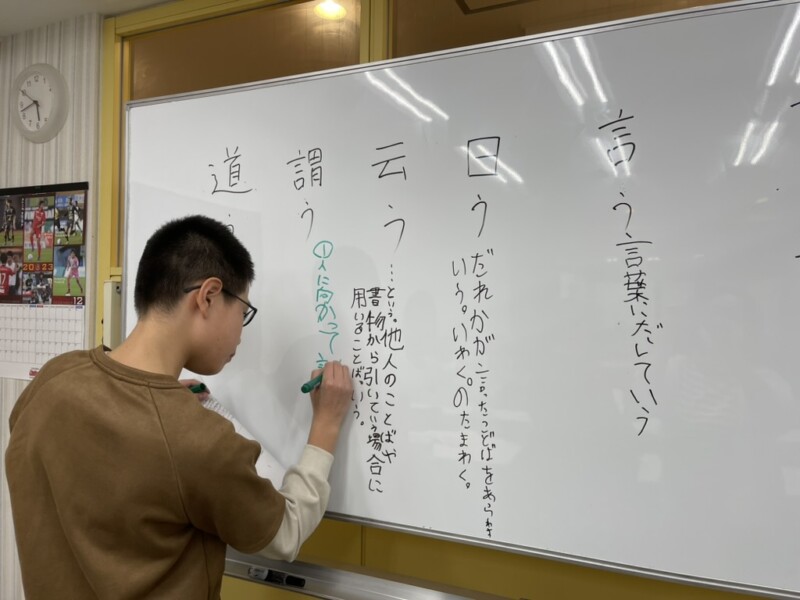 言う 言葉にだしていう
曰う だれかが言ったことばをあらわす
いう。いわく。のたまわく。
云う …という。他人のことばや
書物から引いていう場合に
用いることば。いう。
謂う ①人に向かって言
道う
2023
12